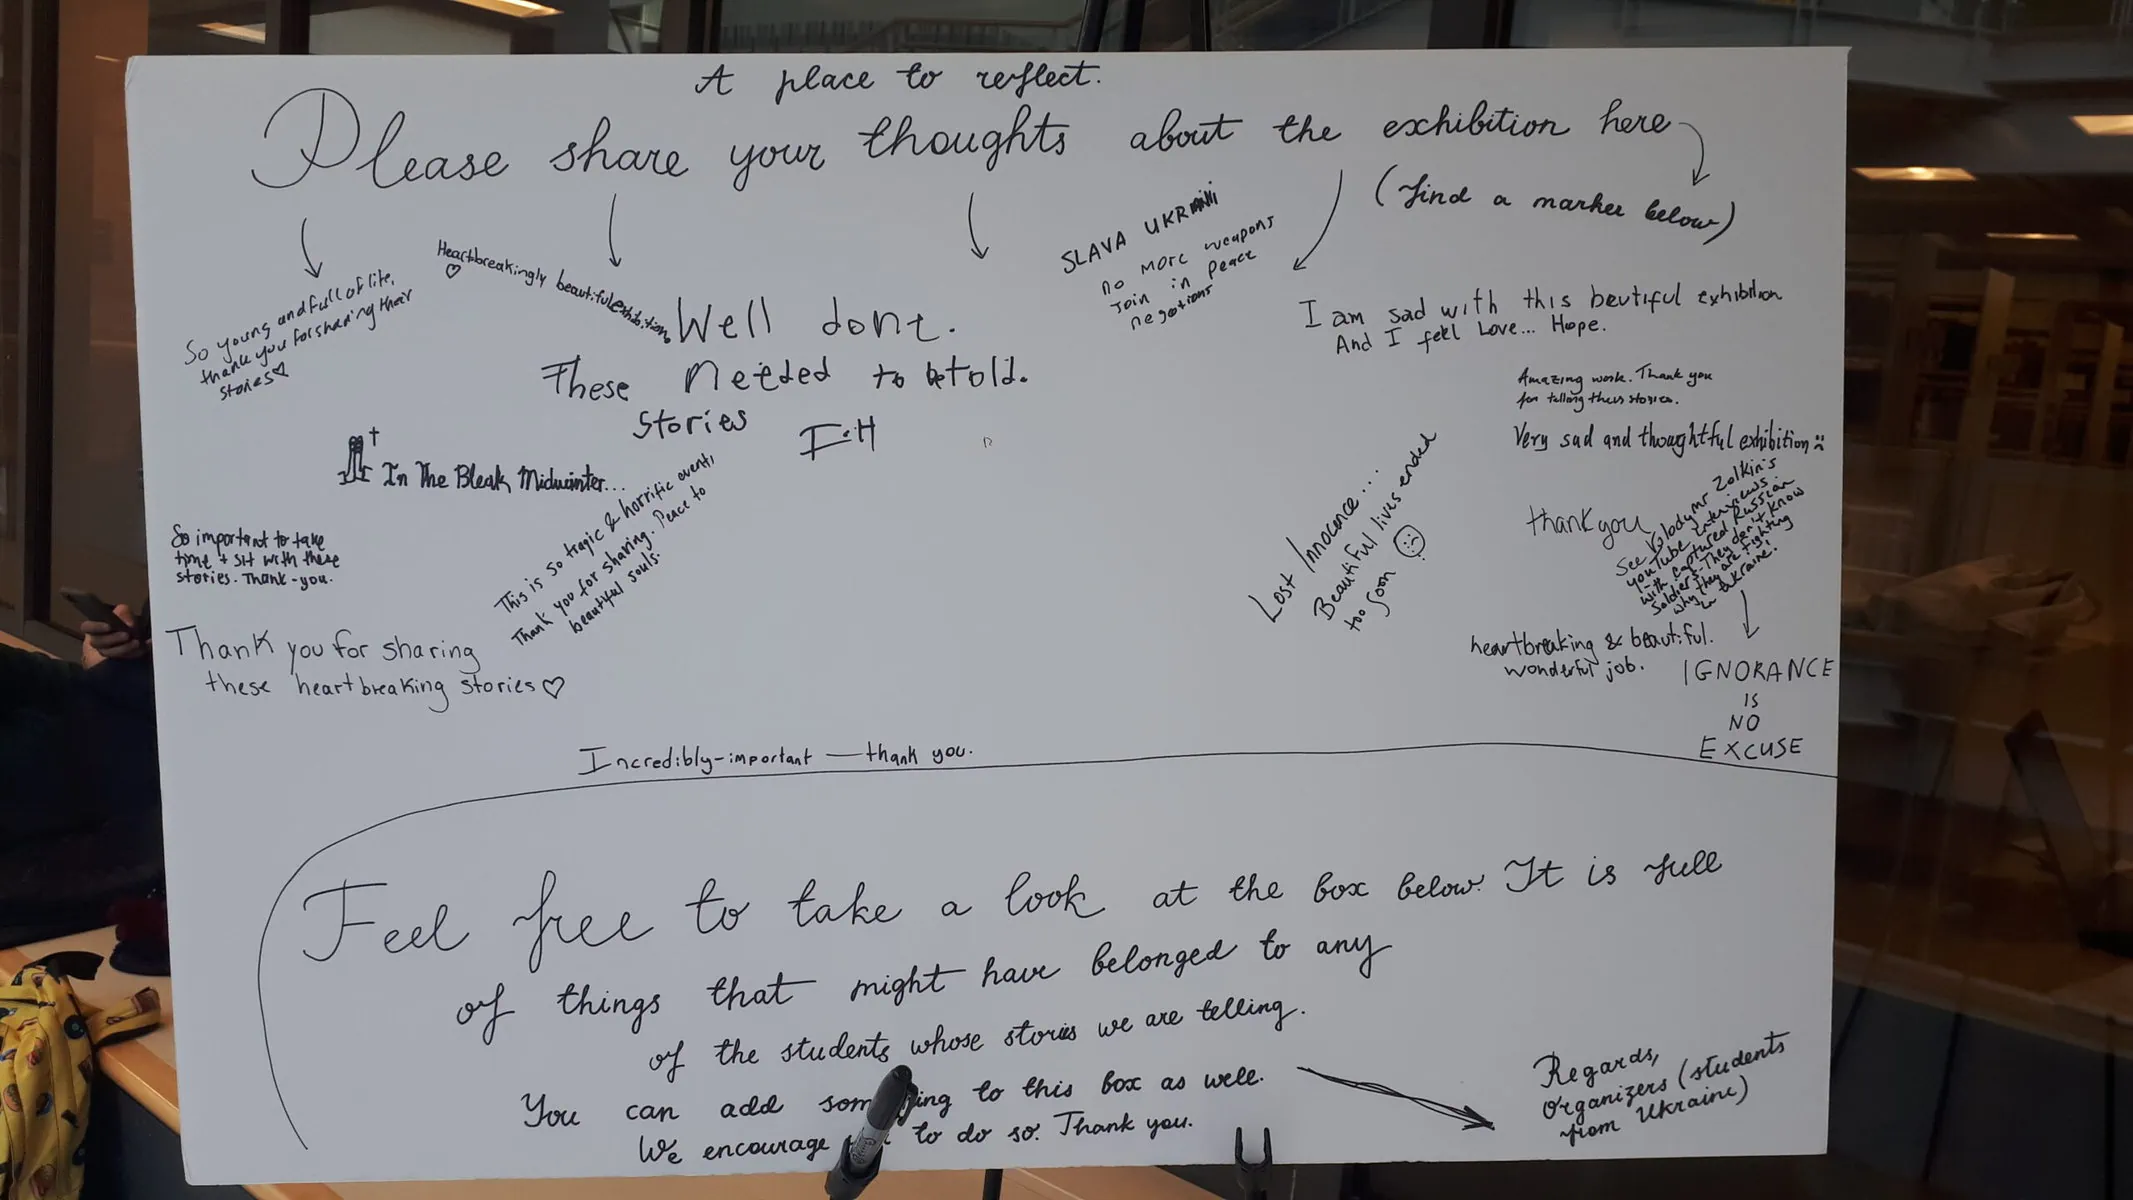 A place to reflect.
Please share your thoughts about the exhibition here
(find a marker below)
So young and full of life,
thank you for sharing their
stories♡
Heartbreakingly beautiful exhibition.
♡
Well done.
These needed to be told.
stories
SLAVA UKRAINI
no more weapons
Join in peace
negotions
I am sad with this beutiful exhibition
And I feel Love... Hope.
Amazing work. Thank you
for telling these stories.
Very sad and thoughtful exhibition
In The Bleak Midwinter...
So important to take
time + sit with these
stories. Thank-you.
This is so tragic & horrific event,
Thank you for sharing. Peace to
beautiful souls.
Lost Innocence...
Beautiful lives ended
too soon ☹
thank you
See Volodymr Zolkin's
youtube interviews
with captured Russian
Soldiers-They don't know
why they are fighting
in Ukraine!
IGNORANCE
IS
NO
EXCUSE
heartbreaking & beautiful.
wonderful job.
Thank you for sharing
these heartbreaking stories♡
Incredibly-important — thank you.
Feel free to take a look at the box below. It is full
of things that might have belonged to any
of the students whose stories we are telling.
You can add something to this box as well.
We encourage to do so. Thank you.
Regards,
organizers (students
from Ukraine)